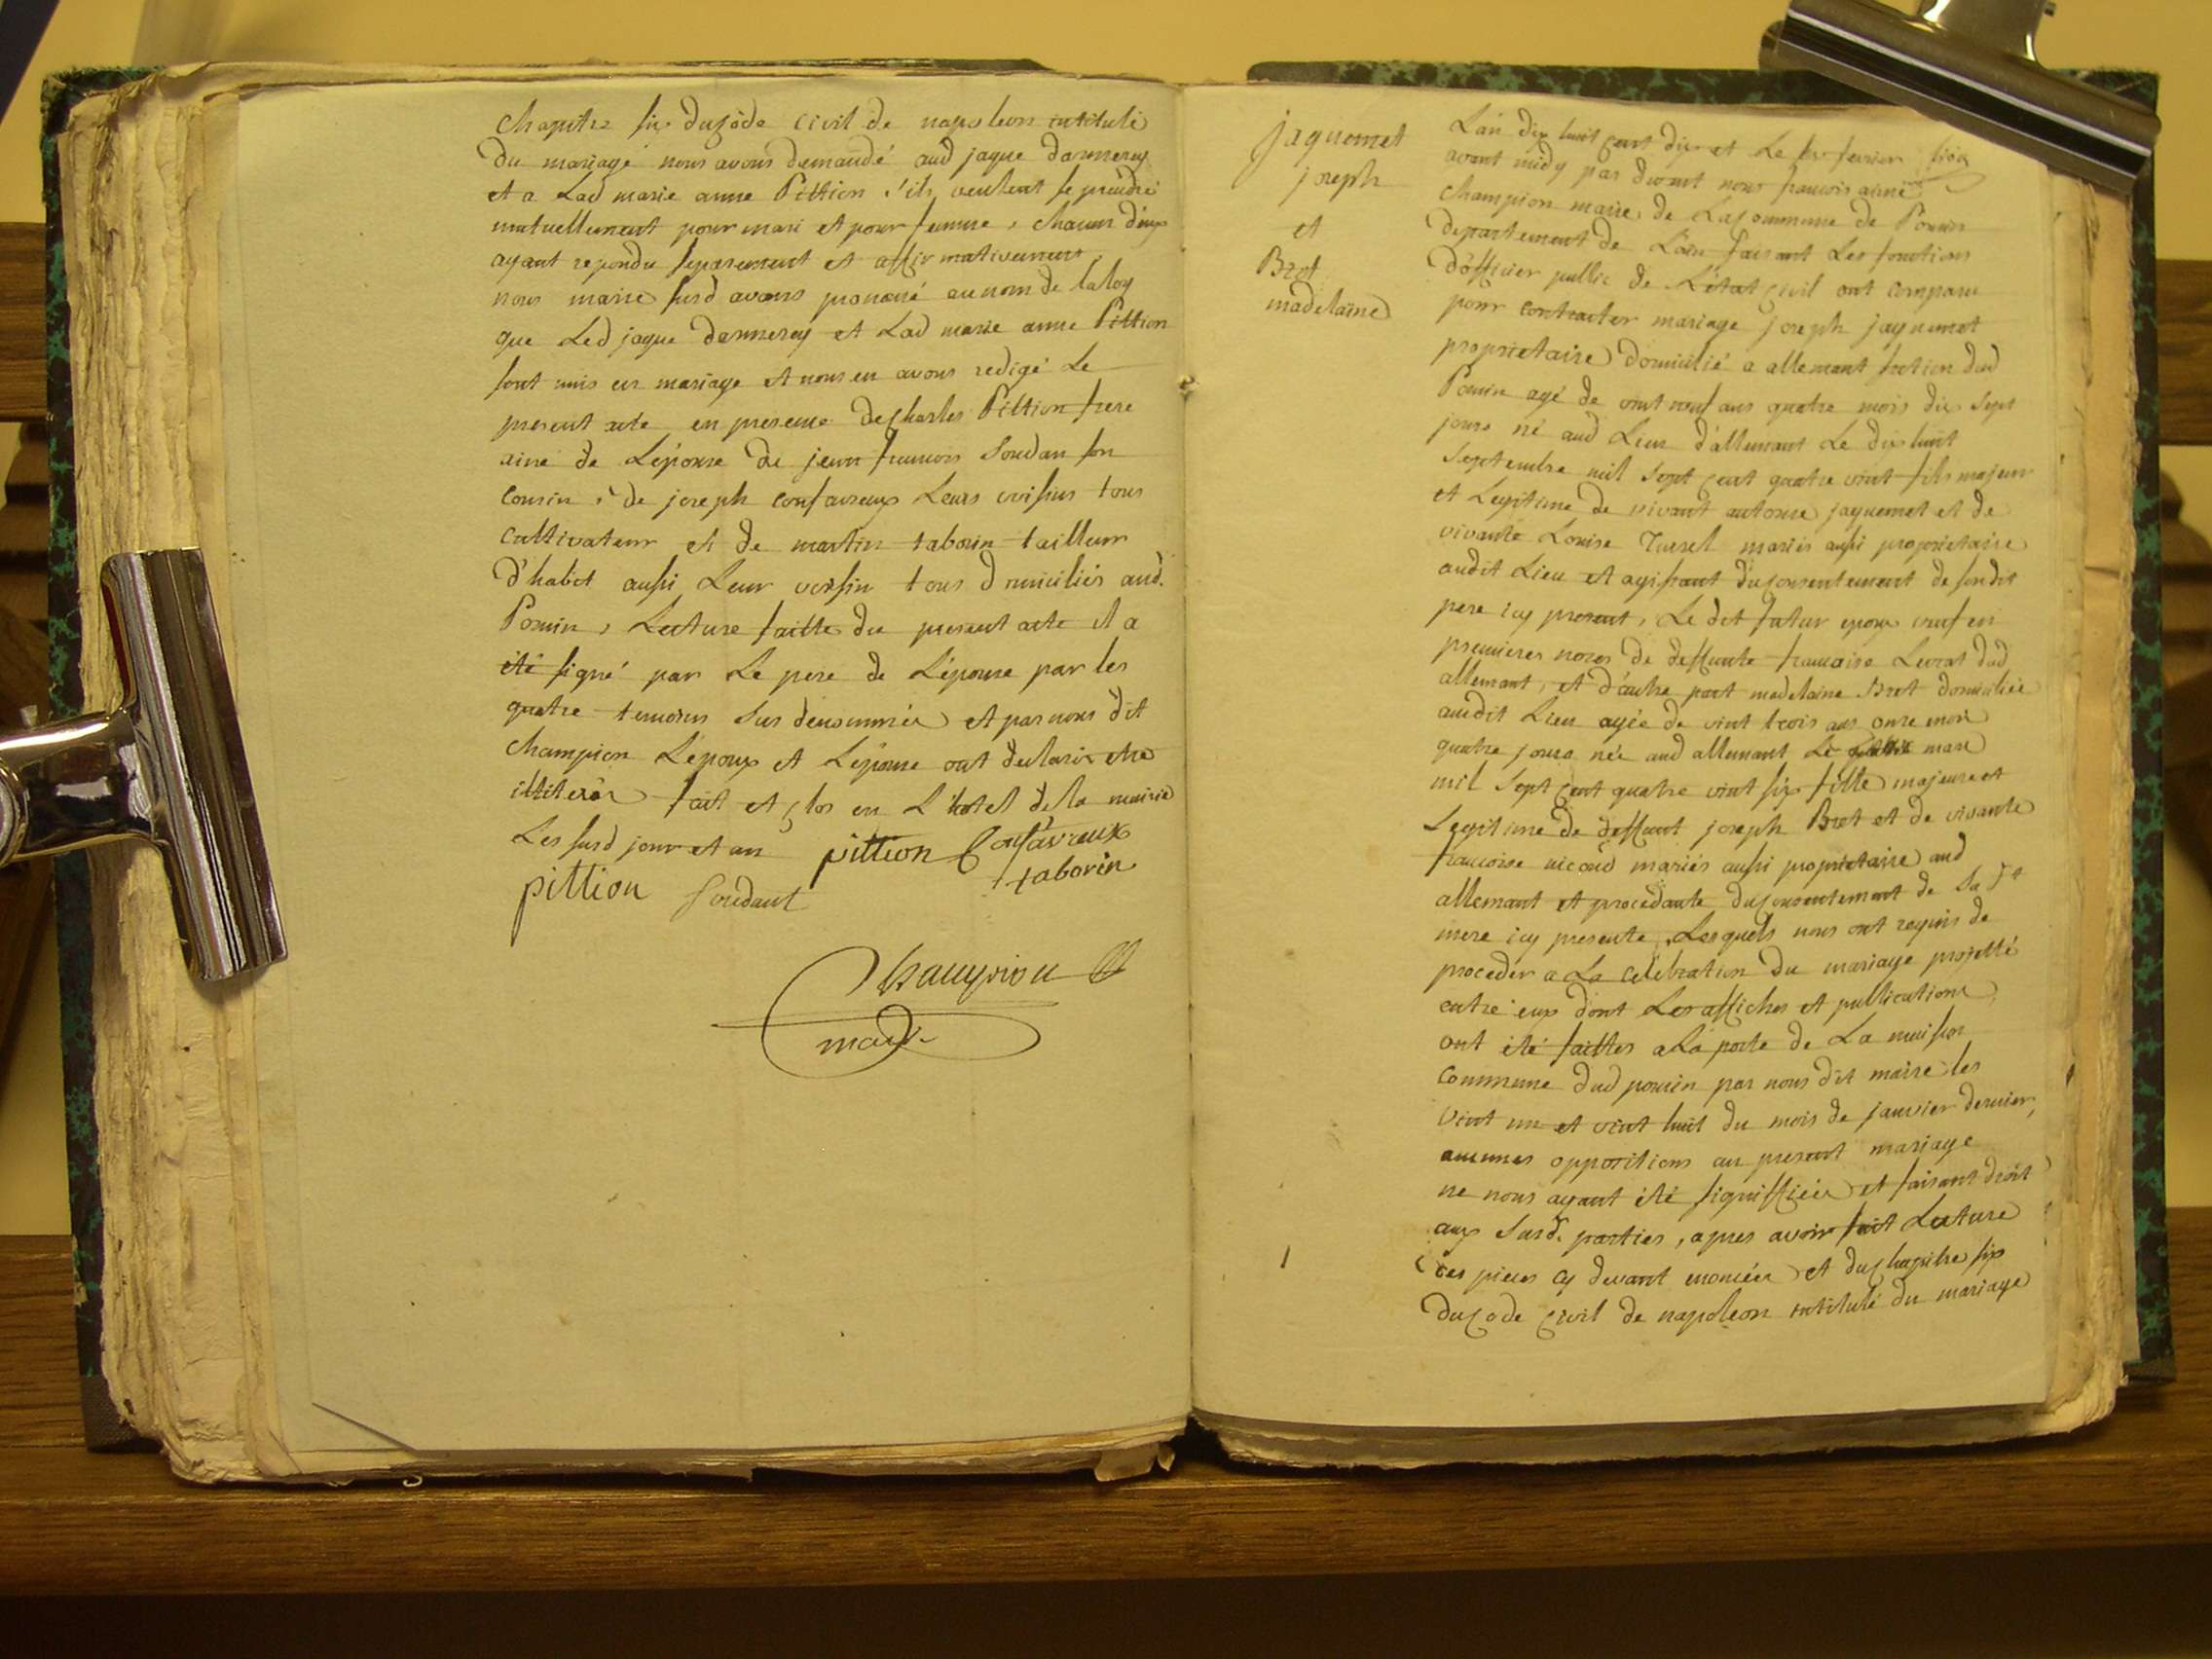 chapitre six du code civil de napoleon intitulé
du mariage nous avons demandé aud jaque dannerey
et a Lad marie anne Pittion s'ils veulent se prendre
mutuellement pour mari et pour femme, chacun d'eux
ayant repondu separement et affirmativement,
nous maire susd avons prononcé au nom de la loy
que Led jaque dannerey et Lad marie anne Pittion
sont unis en mariage et nous en avons redigé Le
present acte en presence de charles Pittion frere
ainé de L'épouse de jean francois Soudan son
cousin, de joseph confavreux Leurs voisins tous
cultivateur et de martin taborin tailleur
d'habit aussi Leur voisin tous domiciliés aud.
Pomin, Lecture faitte du present acte il a
été signé par Le pere de L'épouse par les
quatre temoins sus denommés et par nous dit
champion L'epoux et L'épouse ont declaré etre
illiteréz fait et clos en L'hotel de la mairie
Les susd jour et an pittion Confavreux
pittion soudant taborin
Champion
maire
jaquemet
joseph
et
Bret
madelaine
L'an dix huit cent dix et Le six fevrier
avant midy par devant nous francois aimé
champion maire de La commune de Pomin
departement de L'ain faisant Les fonctions
d'officier public de L'état civil ont comparu
pour contracter mariage joseph jaquemet
proprietaire domicilié a allemant section dud
Pomin agé de vint neuf ans quatre mois dix sept
jours né aud Lieu d'allemant Le dix huit
septembre mil sept cent quatre vint fils majeur
et Legitime de vivant antoine jaquemet et de
vivante Louise mariés aussi proprietaire
audit Lieu et agissant du consentement de sondit
pere icy present, Le dit futur epoux veuf en
premieres noces de deffunte francoise Levrat dud
allemant, et d'autre part madelaine Bret domiciliée
audit Lieu agée de vint trois ans onze mois
quatre jours née aud allemant Le mars
mil sept cent quatre vint six fille majeure et
Legitime de deffunt joseph Bret et de vivante
francoise nicoud mariés aussi proprietaire aud
allemant et procedante du consentement de sa dt
mere icy presente, Lesquels nous ont requis de
proceder a La celebration du mariage projetté
entre eux dont Les affiches et publications
ont été faittes a La porte de La maison
commune dud pomin par nous dit maire les
vint un et vint huit du mois de janvier dernier,
aucunes oppositions au present mariage
ne nous ayant été signiffiées et faisant droit
aux susd. parties, apres avoir fait Lecture
des pieces cy devant enoncées et du chapitre six
du code civil de napoleon intitulé du mariage